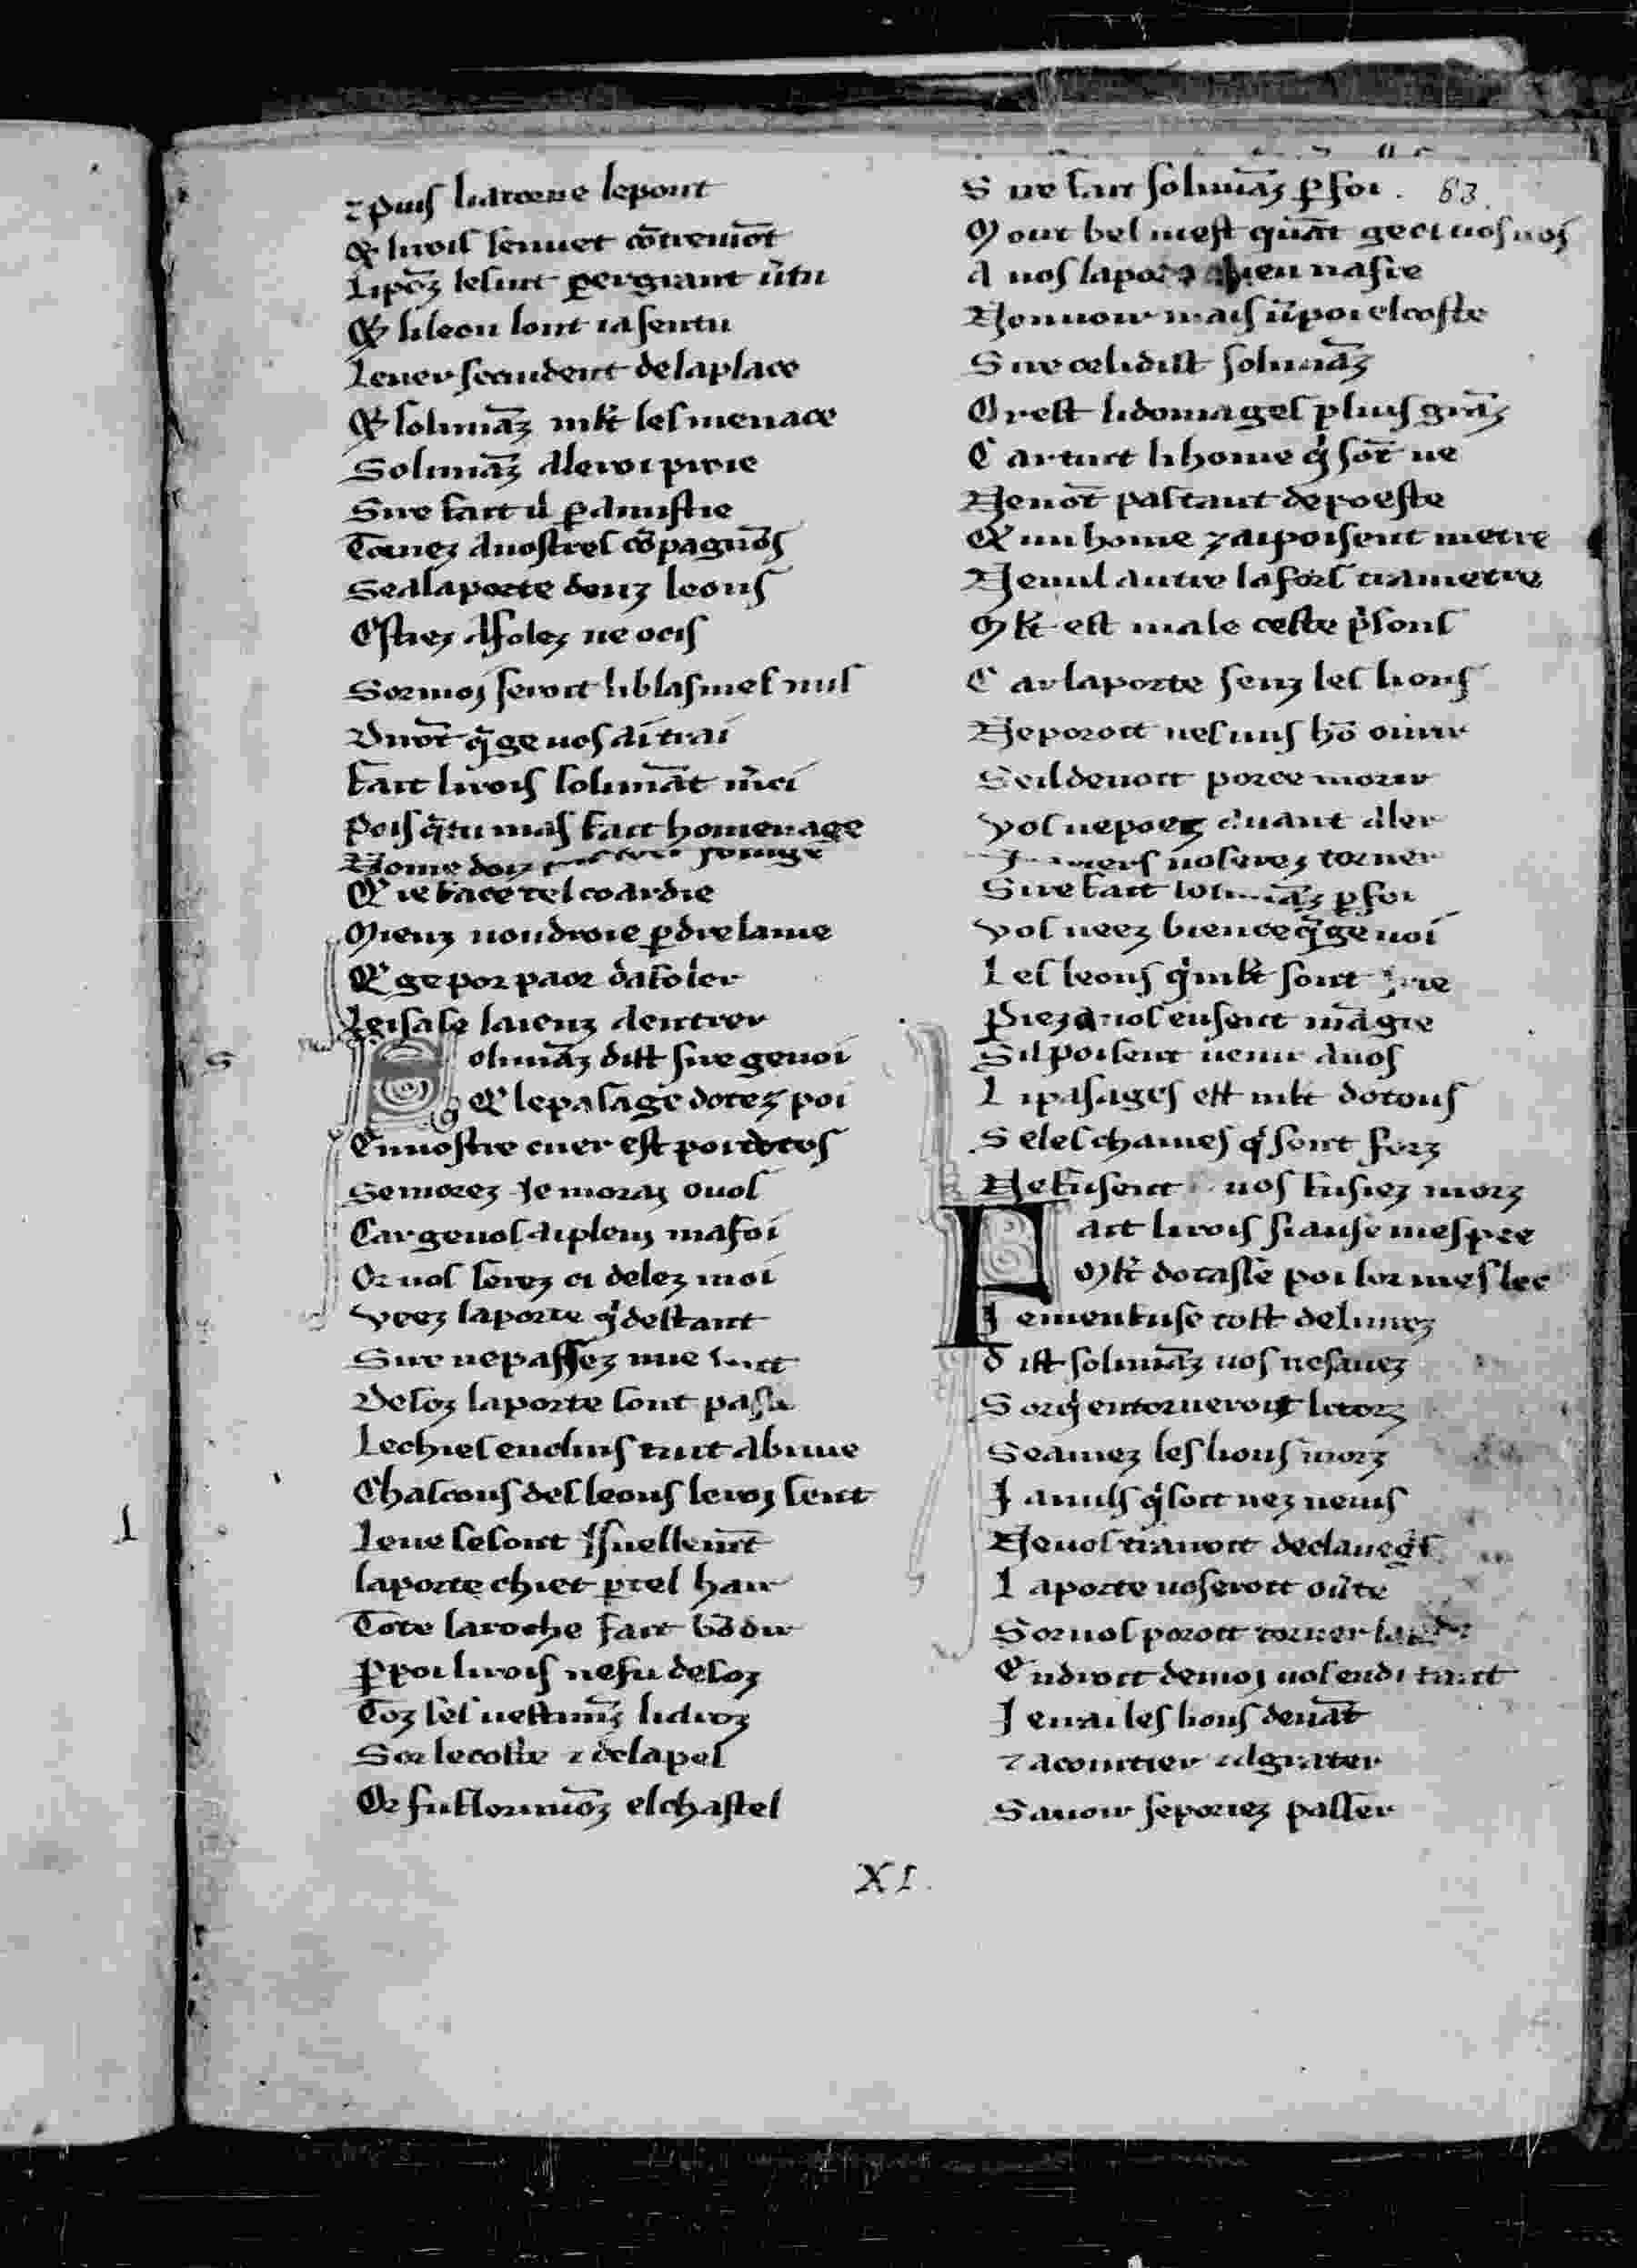 ⁊ puis li atorne le pont
Et li rois senuet c̄tremōt
Li pōz lesust ꝑ ergrant ũtu
Et li leon lont ia sentu
Leuer secuident de la place
Et solimāz mlt̄ les menace
Solimāz ale roi proie
Sire fait il ꝑ amistie
Tornez a uostres cōpagnōs
Se a la porte deuz leons
Estiez afolez ne ocis
Sor moi seroit li blasmes mis
Diroēt q̃ ge uos ai trai
Fait li rois solimāt m̃ci
Pois q̃ tu mas fait homenage
Nome doiz
Que ie face tel coardie
Mieuz uoudroie ꝑdre la uie
Que ge por paor dafoler
Leisase laienz dentrer
Solimāz dist sire ge uoi
Que le pasage dotez poi
En uostre cuer est poi dotos
Se morez Je morai o uos
Car ge uos ai pleui ma foi
Or uos serez ci delez moi
Veez la porte q̇ destant
Sire ne passez mie
Desoz la porte sont pase
Le chief enclins tuit abrime
Chascuns des leons le roi sent
Leue se sont Jsuellemēt
la porte chiet ꝑ tel hair
Tote la roche fait bōdir
Ꝑ poi li rois ne fu desoz
Toz les uestimēz li a roz
Sor le coste ⁊ de la pel
Or fu florimōz el chastel
Sire fait solimāz ꝑ foi . 63.
Mout bel mest quāt ge ci uos uoi
A uos la porte bien nasre
Non uoir mais ũ poi el coste
Sire celi dist solimāz
Or est li domages plus grāz
Car tuit li home q̇ sōt ne
Ne uōt pas tant de poeste
Que un home ⁊ ai poisent metre
Ne nul autre la fors trametre
Mlt̄ est male ceste p̃sons
Car la porte senz les lions
Ne poroit nes uns hō ouurir
Se il deuoit porce morir
Vos ne poez auant aler
uos erez torner
Sire fait solimāz ꝑ foi
Vos ueez bien ce q̃ ge uoi
Les leons q̇ mlt̄ sont ire
Piez a uos eusent māgie
Sil poisent uenir a uos
Li pasages est mlt̄ dotous
Se les chaines q̇ sont forz
Ne fusent uos fusiez morz
Fait li rois si ause mespee
Mlt̄ dotasse poi lor meslee
Je men fuse tost deliurez
Dist solimāz uos ne sauez
Sor q̇ en torneroit li torz
Se auiez les lions morz
Jamais q̇ soit nez ne uis
Ne uos trairoit de clauegĩs
La porte uos eroit oũte
Sor uos poroit torner la
Endroit de moi uos en di tant
Jentrai les lions deuāt
⁊ acointier ⁊ agrater
Sauoir se poriez passer
S
I
XI.